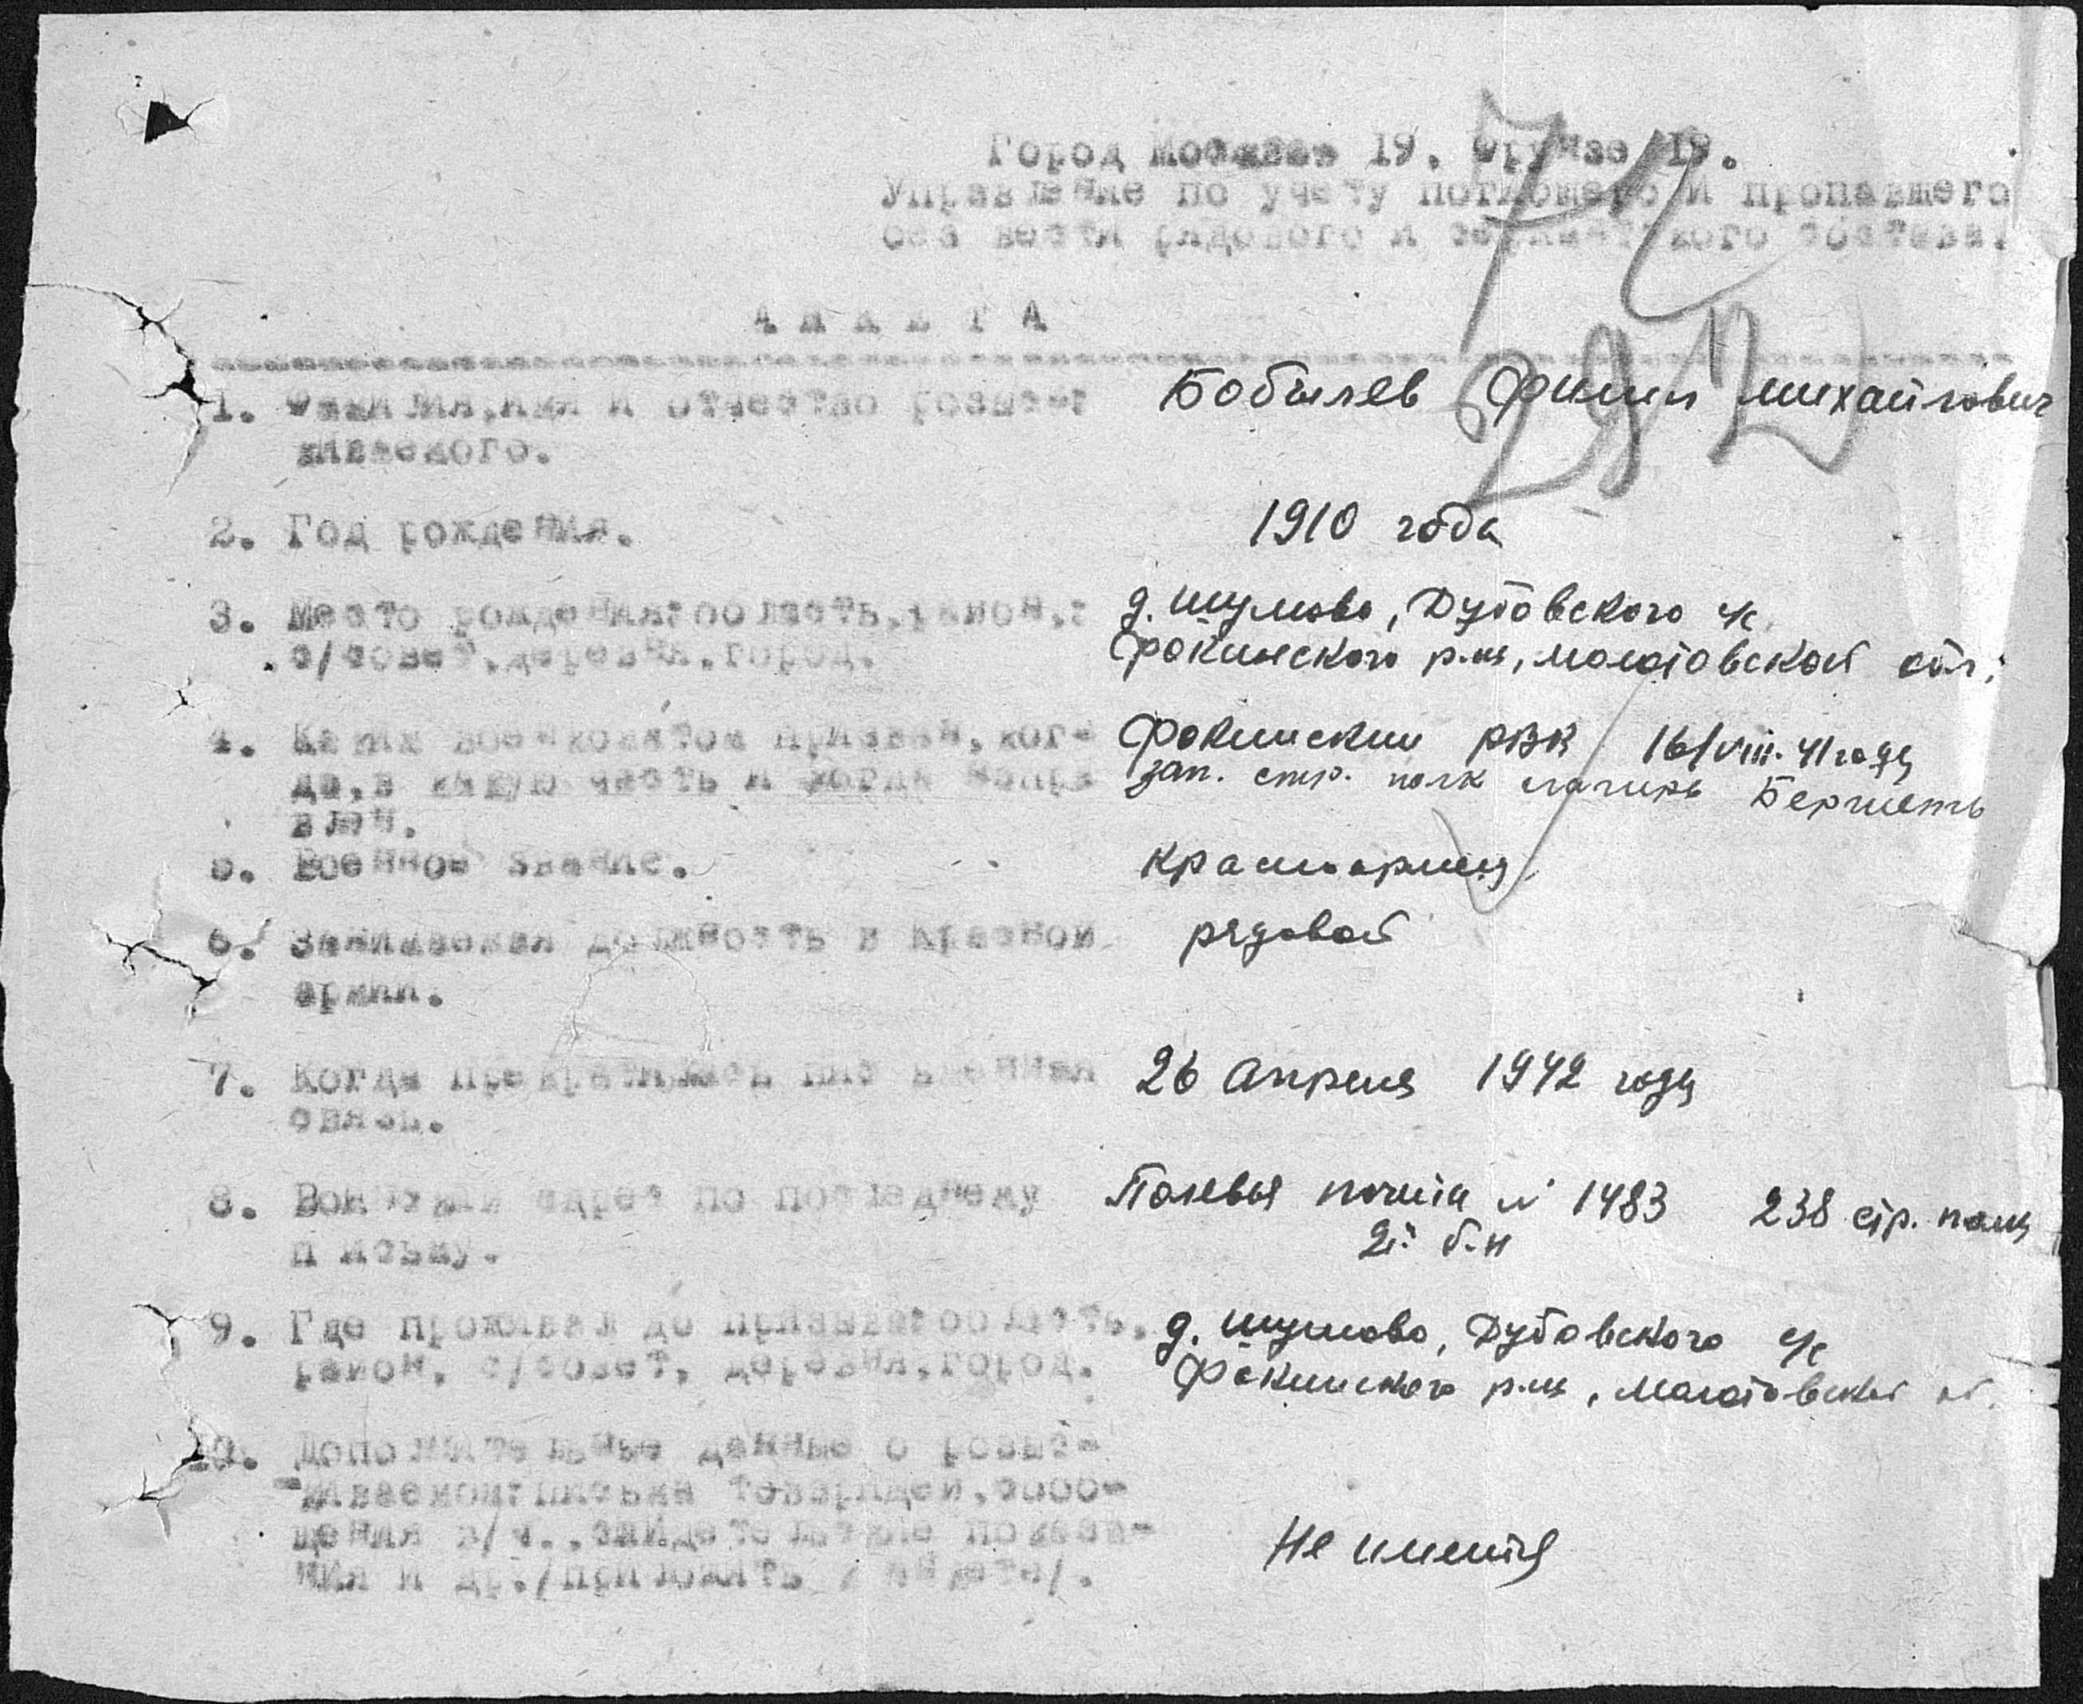 Город Москва 19, Фрунзе 19.
Управление по учету погибшего и пропавшего
без вести рядового и сержантского состава.
71
2912
АНКЕТА
1. Фамилия, имя и отчество разыс- Бобылев Филип Михайлович
киваемого.
2. Год рождения. 1910 года
3. Место рождения: область, район, д. Шулмово, Дубовского с/с
с/совет, деревня, город. Фокинского р-на, Молотовской обл;
4. Каким военкоматом призван, ког- Фокинским РВК 16/VIII. 41 года
да, в какую часть и когда запр. стр. полк лагирь Бершеть
влен.
5. Военное звание. Красноармеец
6. Занимаемая должность в Красной рядовой
армии.
7. Когда прекратилась 26 Апреля 1942 года
связь.
8. адрес по последнему Полевая почта № 1483 238 стр. полк
письму. 2й б-н
9. Где проживал до призыва: область, д. Шулмово, Дубовского с/с
район, с/совет, деревня, город. Фокинского р-на, Молотовской об.
10. Дополнительные данные о розыс-
киваемом: письма товарищей, сооб-
щения в/ч., свидетельские показа-
ния и др. /приложить к анкете/. Не имеится